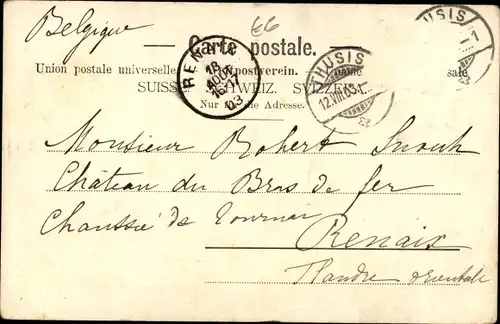 Belgique
E6
Carte postale.
Union postale universelle. postverein. sale
SUISSE. SCHWEIZ. SVIZZERA.
Nur Adresse.
RENAIX
18
AOUT
03
THUSIS
12.VIII.03
THUSIS
Monsieur Robert
Château du Bras de fer
Chaussée de Tournai
Renaix
Flandre orientale